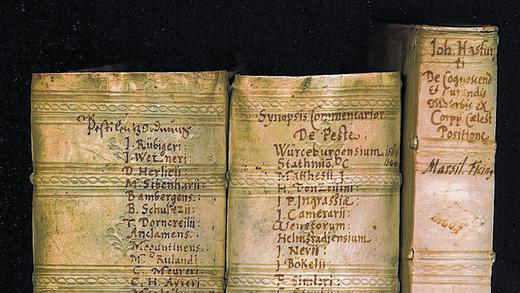 Pestilentzordnung
J. Rübigeri:
J. Werneri:
D. Herlici:
M. Sibenharii:
Bambergens:
B. Schultzii:
T. Dorncreilii:
Anclamens:
Moguntinens:
M. Rulandi:
C. Meureri:
C. H. Ayreri
Synopsis Commentarior.
De Peste.
Würceburgensium
Stathmio. D C
M Mthesii J
H. Tonzelini:
J. P. Ingrassiæ:
J. Camerarii:
Venetorum:
Helmstadiensium:
J. Nerii:
J Bökelii:
F. Simlori:
Joh. Hasfur
ti
De Cognoscend
& Curandis
Morbis ex
Corpp Cælest
Positione
Marsil. Ficing